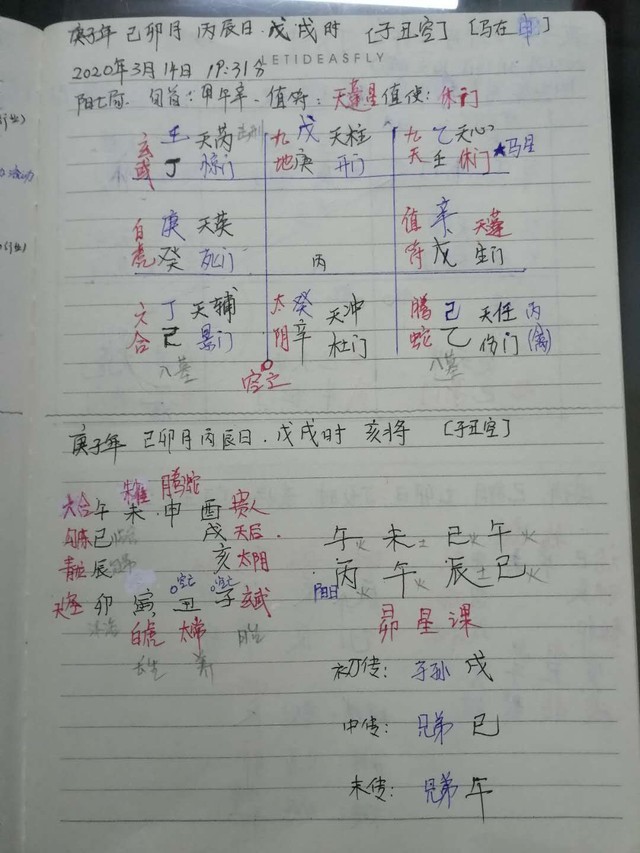 庚子年 己卯月 丙辰日.戊戌时 [子丑空] [马在申]
LETIDEASFLY
2020年3月14日 19:31分
阳七局. 旬首:甲午辛. 值符:天蓬星 值使:休门
玄 壬 天芮 九 戊 天柱 九 乙 天心
武 丁 惊门 地 庚 开门 天 壬 休门 ★马星
白 庚 天英 值 辛 天蓬
虎 癸 死门 丙 符 戊 生门
六 丁 天辅 太 癸 天冲 腾 己 天任 丙
合 己 景门 阴 辛 杜门 蛇 乙 伤门 (禽)
入墓 空亡 入墓
庚子年 己卯月 丙辰日.戊戌时 亥将 [子丑空]
朱雀 腾蛇
六合 午 未 申 酉 贵人
勾陈 巳 戌 天后
青龙 辰 亥 太阴
午火 未土 巳火 午火
空亡 空亡
天空 卯 寅 丑 子 玄武
阳日 丙 午火 辰土 巳火
白虎 太常
长生 养
昴星课
初传: 子孙 戌
中传: 兄弟 巳
末传: 兄弟 午